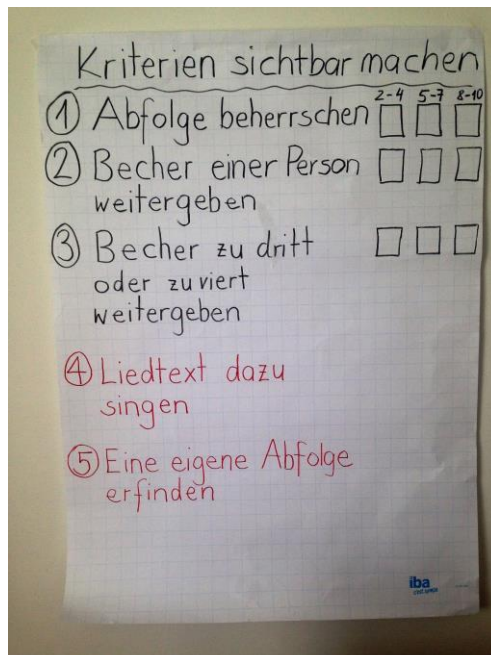 Kriterien sichtbar machen
2-4 5-7 8-10
① Abfolge beherrschen
② Becher einer Person
weitergeben
③ Becher zu dritt
oder zu viert
weitergeben
④ Liedtext dazu
singen
⑤ Eine eigene Abfolge
erfinden
iba